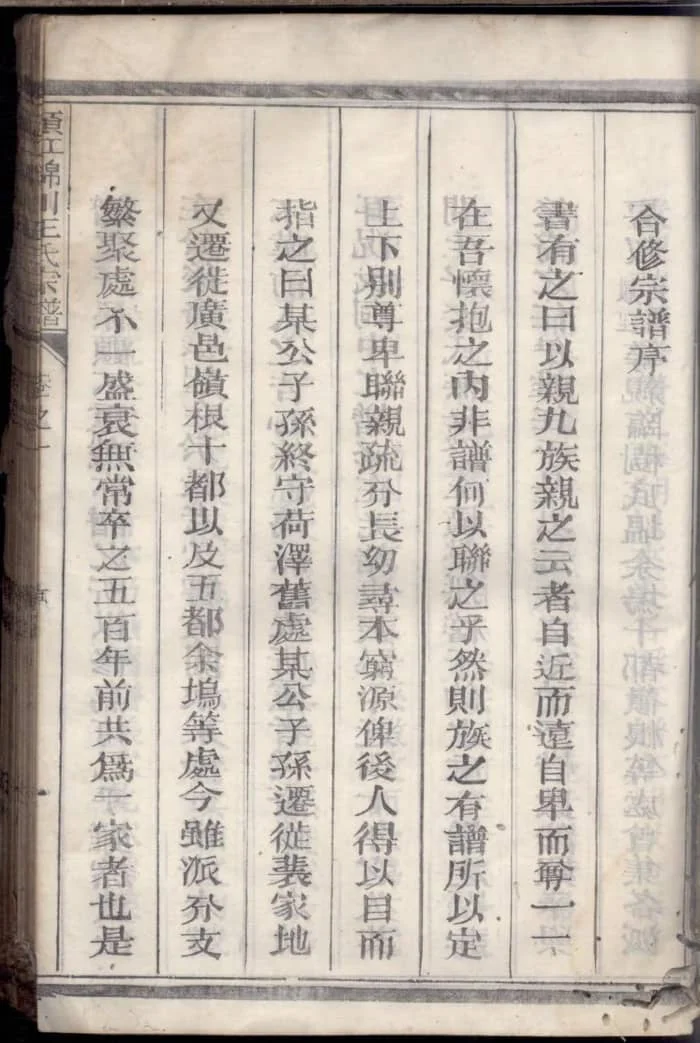 合修宗譜序
書有之曰以親九族親之云者自近而遠自卑而尊一一
在吾懷抱之內非譜何以聯之乎然則族之有譜所以定
上下別尊卑聯親疏分長幼尋本窮源俾後人得以目而
指之曰某公子孫終守荷澤舊處某公子孫遷從裴家地
又遷徙廣邑嶺根十都以及五都余塢等處今雖派分支
繁聚處不一盛衰無常卒之五百年前共爲一家者也是
須江錦川王氏宗譜
卷之一